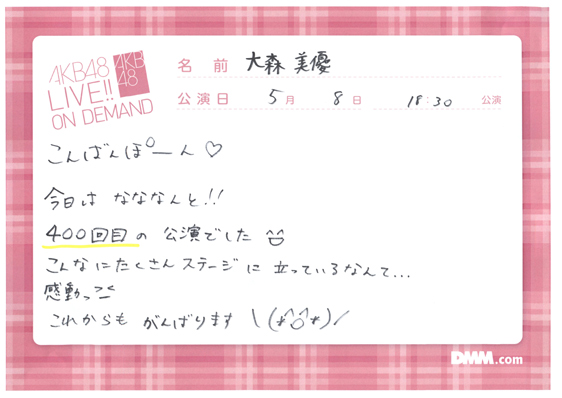 AKB48
LIVE!!
ON DEMAND
AKB
48
名前 大森 美優
公演日 5月 8日 18:30 公演
こんばんぽーん♡
今日は なななんと!!
400回目の 公演でした
こんなにたくさんステージに 立っているなんて...
感動っ
これからも がんばります \(*^o^*)/
DMM.com